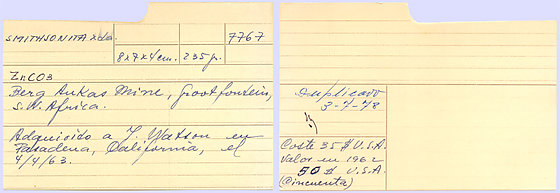 SMITHSONITA xda. 7767
8x7x4cm. 235g.
ZnCO3
Berg Aukas Mine, Grootfontein,
S.W. Africa.
Adquirido a J. Watson en
Pasadena, California, el
4/4/63.
duplicado
3-7-78
Costó 35 $ U.S.A.
Valor en 1962
50 $ U.S.A.
(Cincuenta)